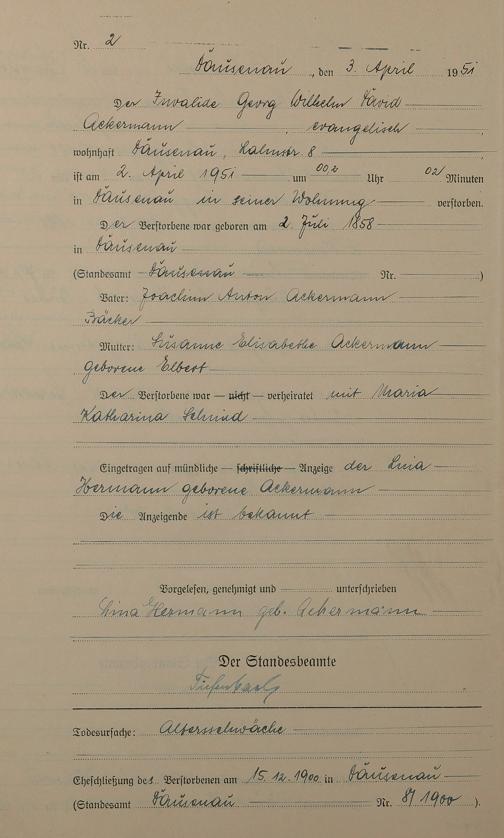 Nr. 2
Dausenau, den 3. April 1951
Der Invalide Georg Wilhelm David
Ackermann, evangelisch
wohnhaft Dausenau, Lahnstr. 8
ist am 2. April 1951 um 00,2 Uhr 02 Minuten
in Dausenau in seiner Wohnung verstorben.
Der Verstorbene war geboren am 2. Juli 1858
in Dausenau
(Standesamt Dausenau Nr. )
Vater: Joachim Anton Ackermann
Bäcker
Mutter: Susanne Elisabethe Ackermann
geborene Elbert
Der Verstorbene war — nicht — verheiratet mit Maria
Katharina Schmid
Eingetragen auf mündliche — schriftliche — Anzeige der Lina
Hermann geborene Ackermann
Die Anzeigende ist bekannt
Vorgelesen, genehmigt und unterschrieben
Lina Hermann geb. Ackermann
Der Standesbeamte
Todesursache: Altersschwäche
Eheschließung des Verstorbenen am 15.12.1900 in Dausenau
(Standesamt Dausenau Nr. 8/1900 ).